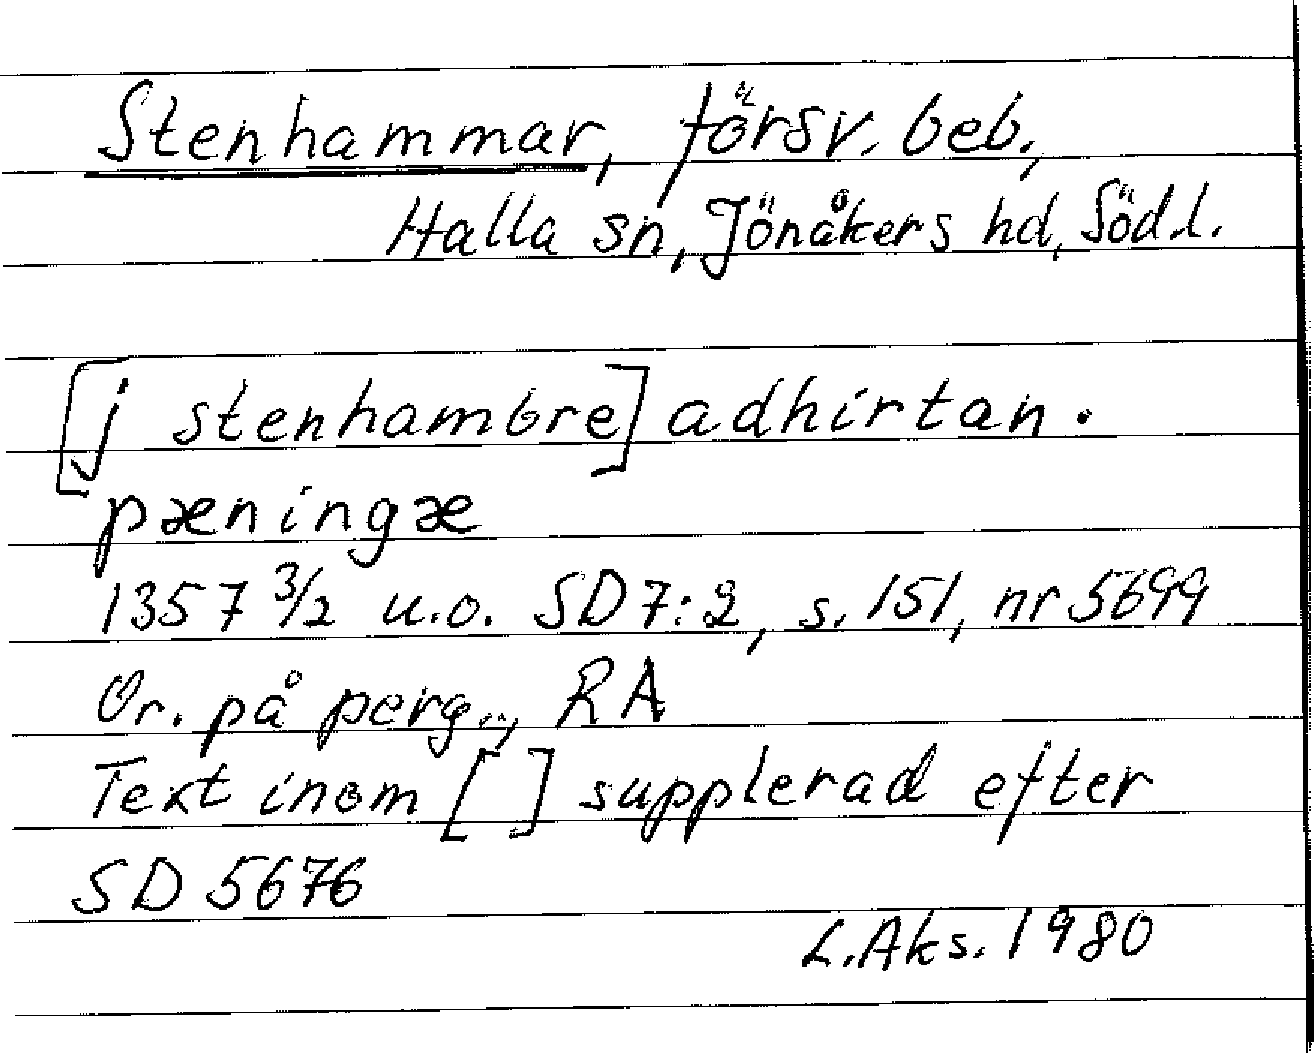 Stenhammar, försv. beb.,
Halla sn, Jönåkers hd, Södl.
[j stenhambre] adhirtan.
pæningæ
1357 3/2 u.o. SD 7:2, s. 151, nr 5699
Or. på perg., RA
Text inom [ ] supplerad efter
SD 5676
L.Aks. 1980